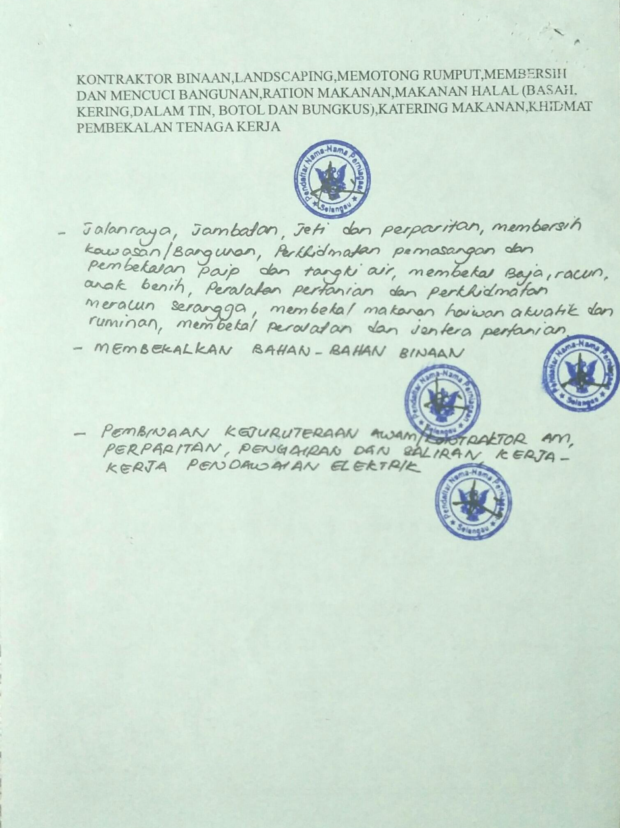 KONTRAKTOR BINAAN,LANDSCAPING,MEMOTONG RUMPUT,MEMBERSIH
DAN MENCUCI BANGUNAN,RATION MAKANAN,MAKANAN HALAL (BASAH,
KERING,DALAM TIN, BOTOL DAN BUNGKUS),KATERING MAKANAN,KHIDMAT
PEMBEKALAN TENAGA KERJA
Pendaftar Nama-Nama Perniagaan
Selangau
- Jalanraya, Jambatan, Jeti dan perparitan, membersih
kawasan/Bangunan, Perkhidmatan pemasangan dan
Pembekalan paip dan tangki air, membekal Baja, racun,
anak benih, Peralatan pertanian dan Perkhidmatan
meracun serangga, membekal makanan haiwan akuatik dan
ruminan, membekal peralatan dan jentera pertanian
- MEMBEKALKAN BAHAN-BAHAN BINAAN
Pendaftar Nama-Nama Perniagaan
Selangau
Pendaftar Nama-Nama Perniagaan
Selangau
- PEMBINAAN KEJURUTERAAN AWAM/KONTRAKTOR AM,
PERPARITAN, PENGAIRAN DAN SALIRAN, KERJA-
KERJA PENDAWAIAN ELEKTRIK
Pendaftar Nama-Nama Perniagaan
Selangau